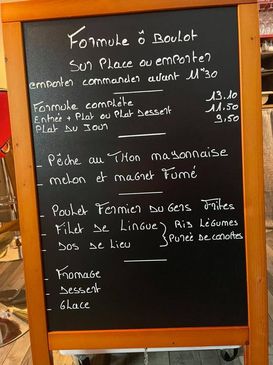 Formule ô Boulot
Sur Place ou emporter
emporter commander avant 11H30
Formule complète 13.10
Entrée + Plat ou Plat Dessert 11.50
Plat Du Jour 9,50
- Pêche au Thon mayonnaise
- melon et magret Fumé
- Poulet Fermier Du Gers Frites
- Filet de Lingue } Ris Légumes
- Dos de Lieu } Purée De carottes
- Fromage
- Dessert
- Glace